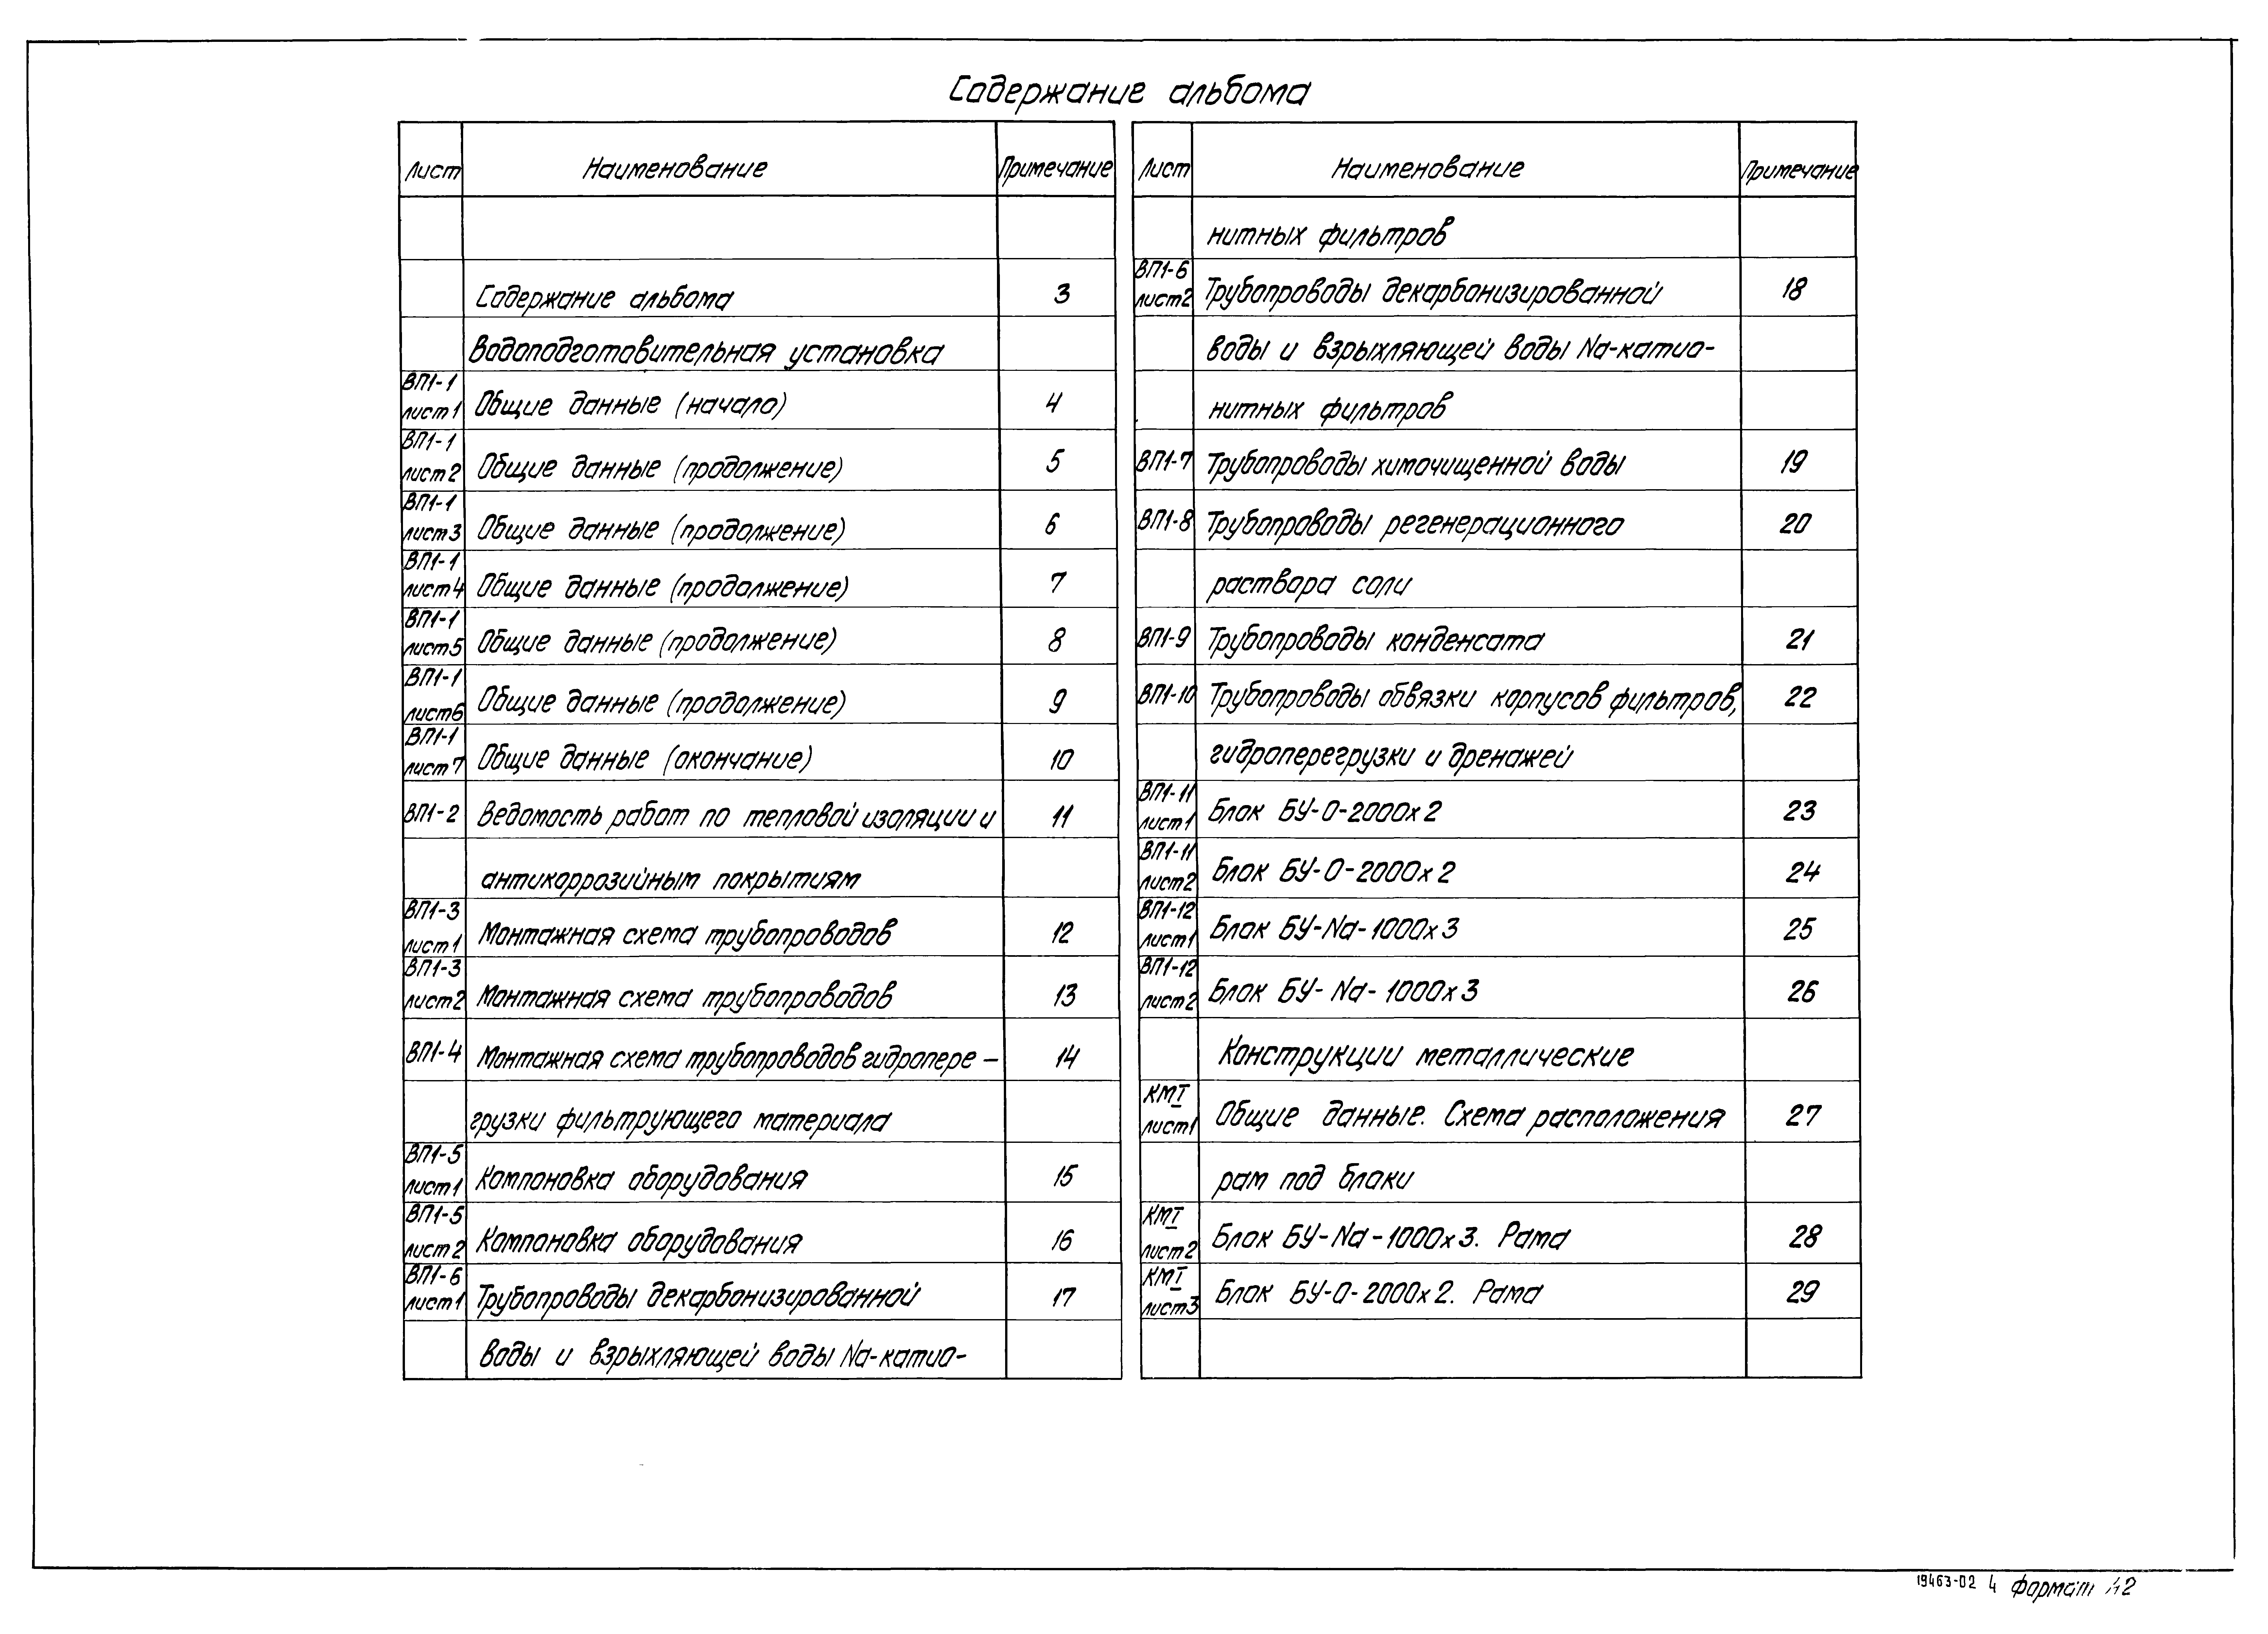 Содержание альбома
Лист Наименование Примечание
Содержание альбома 3
Водоподготовительная установка
ВП1-1 лист1 Общие данные (начало) 4
ВП1-1 лист2 Общие данные (продолжение) 5
ВП1-1 лист3 Общие данные (продолжение) 6
ВП1-1 лист4 Общие данные (продолжение) 7
ВП1-1 лист5 Общие данные (продолжение) 8
ВП1-1 лист6 Общие данные (продолжение) 9
ВП1-1 лист7 Общие данные (окончание) 10
ВП1-2 Ведомость работ по тепловой изоляции и 11
антикоррозийным покрытиям
ВП1-3 лист1 Монтажная схема трубопроводов 12
ВП1-3 лист2 Монтажная схема трубопроводов 13
ВП1-4 Монтажная схема трубопроводов гидропере- 14
грузки фильтрующего материала
ВП1-5 лист1 Компоновка оборудования 15
ВП1-5 лист2 Компоновка оборудования 16
ВП1-6 лист1 Трубопроводы декарбонизированной 17
воды и взрыхляющей воды Na-катио-
Лист Наименование Примечание
нитных фильтров
ВП1-6 лист2 Трубопроводы декарбонизированной 18
воды и взрыхляющей воды Na-катио-
нитных фильтров
ВП1-7 Трубопроводы химочищенной воды 19
ВП1-8 Трубопроводы регенерационного 20
раствора соли
ВП1-9 Трубопроводы конденсата 21
ВП1-10 Трубопроводы обвязки корпусов фильтров, 22
гидроперегрузки и дренажей
ВП1-11 лист1 Блок БУ-О-2000х2 23
ВП1-11 лист2 Блок БУ-О-2000х2 24
ВП1-12 лист1 Блок БУ-Na-1000х3 25
ВП1-12 лист2 Блок БУ-Na-1000х3 26
Конструкции металлические
КМI лист1 Общие данные. Схема расположения 27
рам под блоки
КМI лист2 Блок БУ-Na-1000х3. Рама 28
КМI лист3 Блок БУ-О-2000х2. Рама 29
19463-02 4 Формат А2